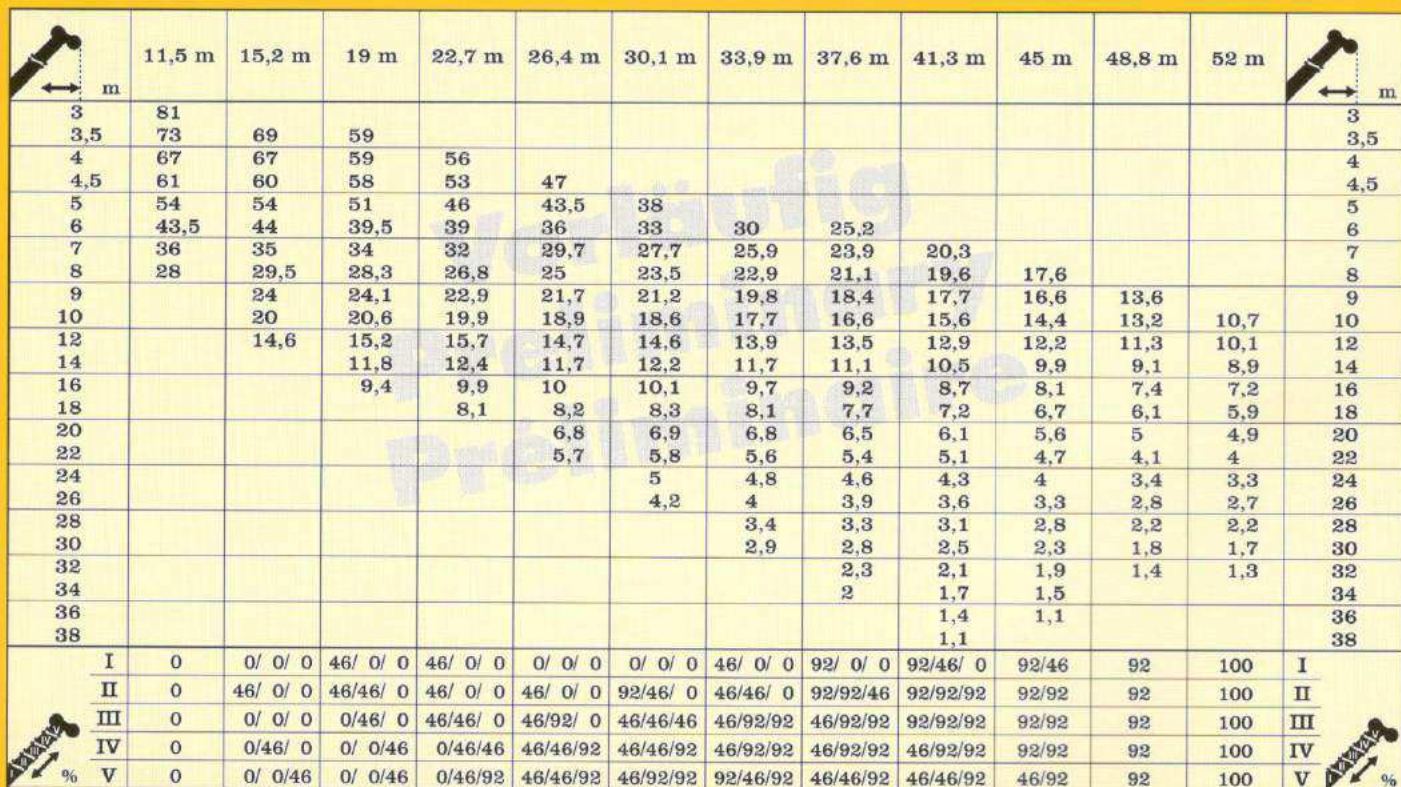 m 11,5 m 15,2 m 19 m 22,7 m 26,4 m 30,1 m 33,9 m 37,6 m 41,3 m 45 m 48,8 m 52 m m
3 81 3
3,5 73 69 59 3,5
4 67 67 59 56 4
4,5 61 60 58 53 47 4,5
5 54 54 51 46 43,5 38 5
6 43,5 44 39,5 39 36 33 30 25,2 6
7 36 35 34 32 29,7 27,7 25,9 23,9 20,3 7
8 28 29,5 28,3 26,8 25 23,5 22,9 21,1 19,6 17,6 8
9 24 24,1 22,9 21,7 21,2 19,8 18,4 17,7 16,6 13,6 9
10 20 20,6 19,9 18,9 18,6 17,7 16,6 15,6 14,4 13,2 10,7 10
12 14,6 15,2 15,7 14,7 14,6 13,9 13,5 12,9 12,2 11,3 10,1 12
14 11,8 12,4 11,7 12,2 11,7 11,1 10,5 9,9 9,1 8,9 14
16 9,4 9,9 10 10,1 9,7 9,2 8,7 8,1 7,4 7,2 16
18 8,1 8,2 8,3 8,1 7,7 7,2 6,7 6,1 5,9 18
20 6,8 6,9 6,8 6,5 6,1 5,6 5 4,9 20
22 5,7 5,8 5,6 5,4 5,1 4,7 4,1 4 22
24 5 4,8 4,6 4,3 4 3,4 3,3 24
26 4,2 4 3,9 3,6 3,3 2,8 2,7 26
28 3,4 3,3 3,1 2,8 2,2 2,2 28
30 2,9 2,8 2,5 2,3 1,8 1,7 30
32 2,3 2,1 1,9 1,4 1,3 32
34 2 1,7 1,5 34
36 1,4 1,1 36
38 1,1 38
I 0 0/ 0/ 0 46/ 0/ 0 46/ 0/ 0 0/ 0/ 0 0/ 0/ 0 46/ 0/ 0 92/ 0/ 0 92/46/ 0 92/46 92 100 I
II 0 46/ 0/ 0 46/46/ 0 46/ 0/ 0 46/ 0/ 0 92/46/ 0 46/46/ 0 92/92/46 92/92/92 92/92 92 100 II
III 0 0/ 0/ 0 0/46/ 0 46/46/ 0 46/92/ 0 46/46/46 46/92/92 46/92/92 92/92/92 92/92 92 100 III
IV 0 0/46/ 0 0/ 0/46 0/46/46 46/46/92 46/46/92 46/92/92 46/92/92 46/92/92 92/92 92 100 IV
% V 0 0/ 0/46 0/ 0/46 0/46/92 46/46/92 46/92/92 92/46/92 46/46/92 46/46/92 46/92 92 100 V %
Vorläufig
Preliminary
Préliminaire